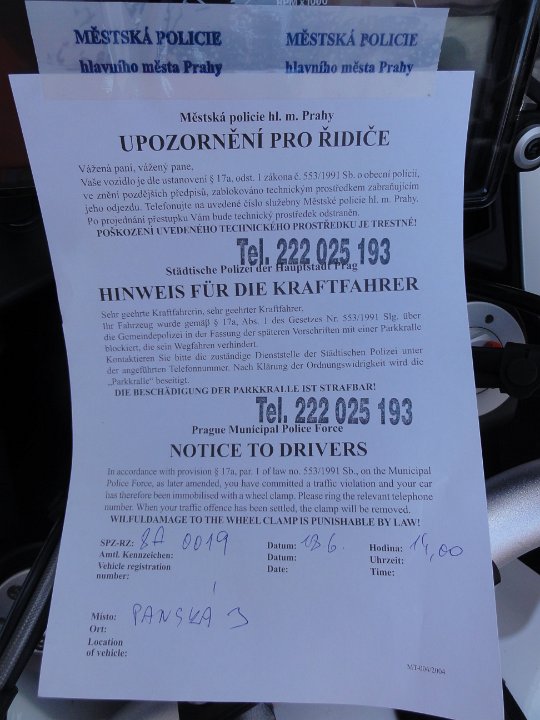 RPM x1000
MĚSTSKÁ POLICIE MĚSTSKÁ POLICIE
hlavního města Prahy hlavního města Prahy
Městská policie hl. m. Prahy
UPOZORNĚNÍ PRO ŘIDIČE
Vážená paní, vážený pane,
Vaše vozidlo je dle ustanovení § 17a, odst. 1 zákona č. 553/1991 Sb. o obecní policii,
ve znění pozdějších předpisů, zablokováno technickým prostředkem zabraňujícím
jeho odjezdu. Telefonujte na uvedené číslo služebny Městské policie hl. m. Prahy.
Po projednání přestupku Vám bude technický prostředek odstraněn.
POŠKOZENÍ UVEDENÉHO TECHNICKÉHO PROSTŘEDKU JE TRESTNÉ!
Tel. 222 025 193
Städtische Polizei der Hauptstadt Prag
HINWEIS FÜR DIE KRAFTFAHRER
Sehr geehrte Kraftfahrerin, sehr geehrter Kraftfahrer,
Ihr Fahrzeug wurde gemäβ § 17a, Abs. 1 des Gesetzes Nr. 553/1991 Slg. über
die Gemeindepolizei in der Fassung der späteren Vorschriften mit einer Parkkralle
blockiert, die sein Wegfahren verhindert.
Kontaktieren Sie bitte die zuständige Dienststelle der Städtischen Polizei unter
der angeführten Telefonnummer. Nach Klärung der Ordnungswidrigkeit wird die
„Parkkralle" beseitigt.
DIE BESCHÄDIGUNG DER PARKKRALLE IST STRAFBAR!
Tel. 222 025 193
Prague Municipal Police Force
NOTICE TO DRIVERS
In accordance with provision § 17a, par. 1 of law no. 553/1991 Sb., on the Municipal
Police Force, as later amended, you have committed a traffic violation and your car
has therefore been immobilised with a wheel clamp. Please ring the relevant telephone
number. When your traffic offence has been settled, the clamp will be removed.
WILFULDAMAGE TO THE WHEEL CLAMP IS PUNISHABLE BY LAW!
SPZ-RZ: 8A 0019 Datum: 13 6. Hodina: 14,00
Amtl. Kennzeichen: Datum: Uhrzeit:
Vehicle registration Date: Time:
number:
Místo: PANSKA 3
Ort:
Location
of vehicle:
MT-004/2004